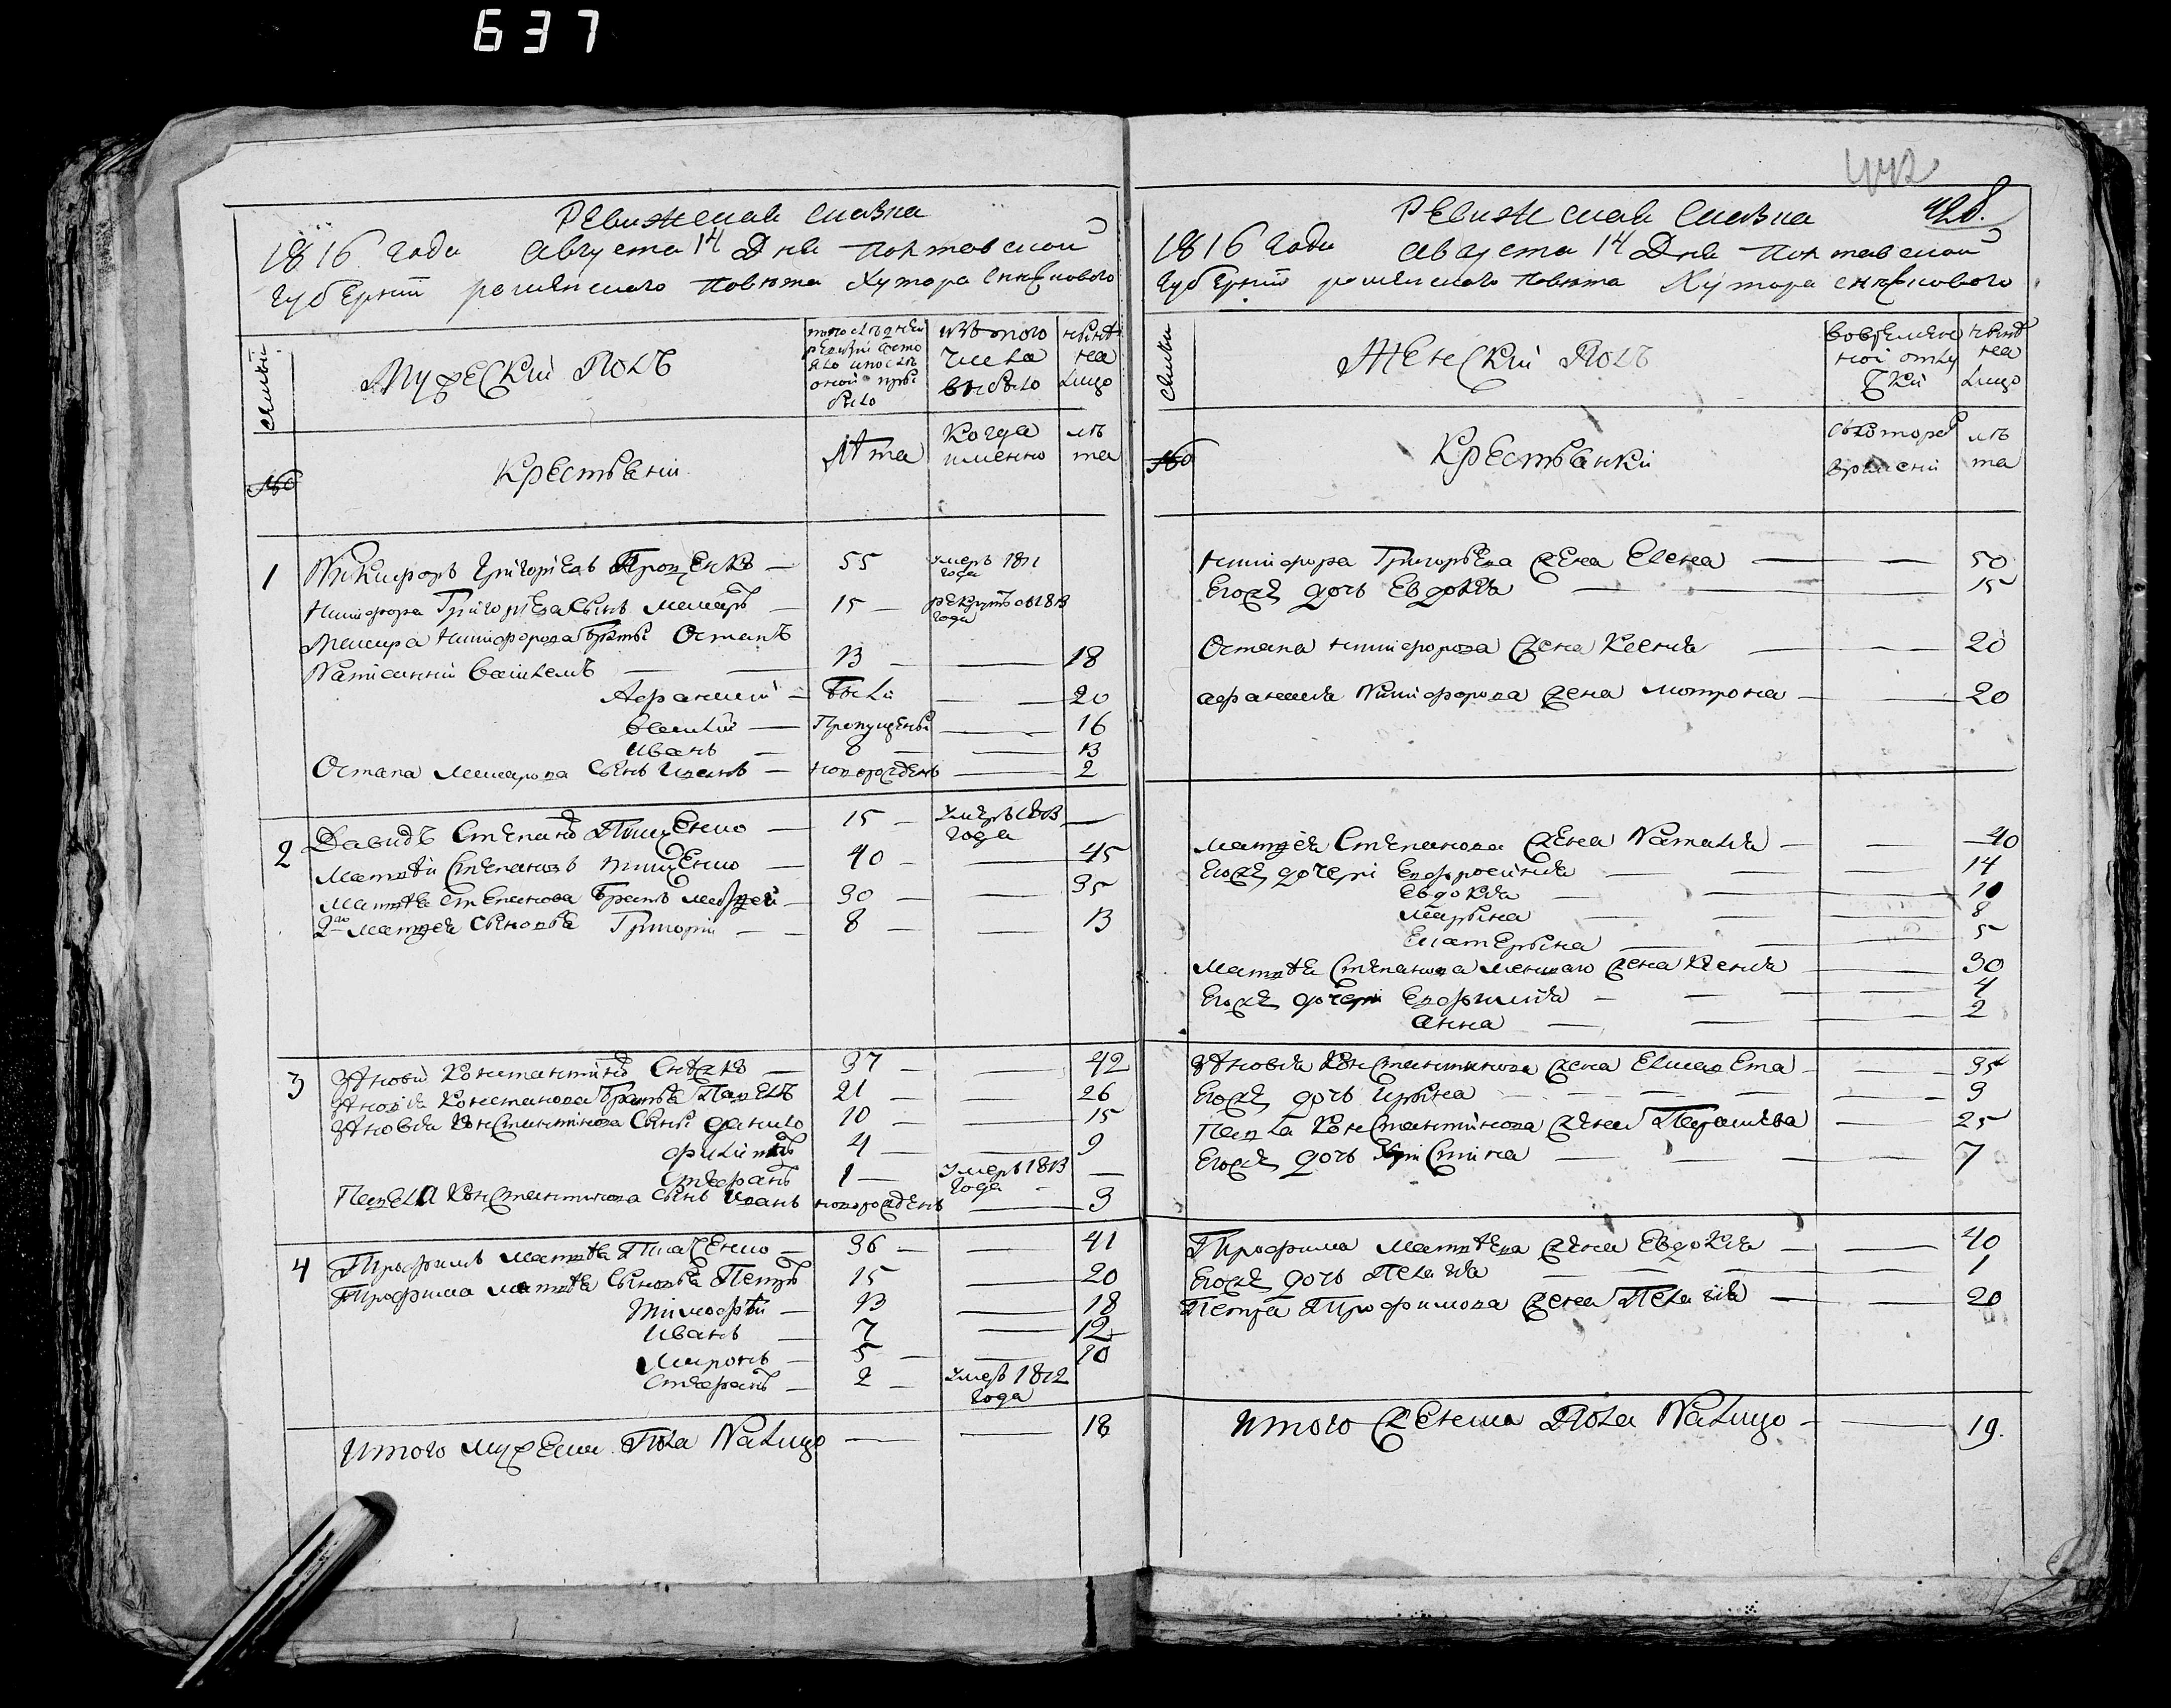 637
Ревижская сказка
1816 года августа 14 дня полтавской
губернии роменского повета хутора
семьи
Мужеский полъ
по последней ревизии состояло и после оной прибыло
изъ того числа выбыло
ныне на лицо
№
Крестьяни
лѣта
Когда именно
лѣта
1 Никифоръ Григориевъ Проценко — 55 умеръ 1811 года
Никифора Григориева сынъ Макаръ — 15 — рекрутъ 1813 года
Макара Никифорова братьи Остапъ
Написанний Василемъ — 13 — 18
Афанасий — Были — 20
Василий — Пропущены — 16
Иванъ — 8 — 13
Остапа сынъ Иванъ — новорожденъ — 2
2 Давидъ Степановъ — 15 — умеръ 1813 года —
Матвѣй Степановъ — 40 — 45
Матвѣя Степанова братъ — 30 — 35
Матвея сыновья Григорий — 8 — 13
3 Зѣновий Константиновъ — 37 — 42
Зѣновия Константинова братья Павелъ 21 — 26
Зѣновия Константинова сыны Данило 10 — 15
Филипъ 4 — 9
Стефанъ 1 — умеръ 1813 года —
Павела Константинова сынъ Иванъ новорожденъ — 3
4 Трофимъ Матвѣевъ — 36 — 41
Трофима Матвѣева сыновья Петръ 15 — 20
Тимофѣй — 13 — 18
Иванъ — 7 — 12
Миронъ — 5 — 10
Стефанъ — 2 — умеръ 1812 года
Итого мужеска пола Налицо — 18
442
428.
Ревижская сказка
1816 года августа 14 дня полтавской
губернии роменского повета хутора
семьи
Женский полъ
во временной отлучки
ныне на лицо
№
Крестьянки
съ которого времени
лѣта
Никифора Григорьева жена Елена — 50
Егожъ дочь Евдокия — 15
Остапа Никифорова жена Ксения — 20
Афанасия Никифорова жена Мотрона — 20
Матвея Степанова жена Наталия — 40
Егожъ дочери Евфросиния — 14
Евдокия — 10
Марына — 8
Екатерына — 5
Матвѣя Степанова меншаго жена Ксения — 30
Егожъ дочери Евфимия — 4
Анна — 2
Зѣновия Константинова жена Елисавета — 35
Егожъ дочь Ирына — 9
Павла Константинова жена — 25
Егожъ дочь Христина — 7
Трофима Матвѣева жена Евдокия — 40
Егожъ дочь Пелагия — 1
Петра Трофимова жена Пелагия — 20
Итого женска пола Налицо — 19.